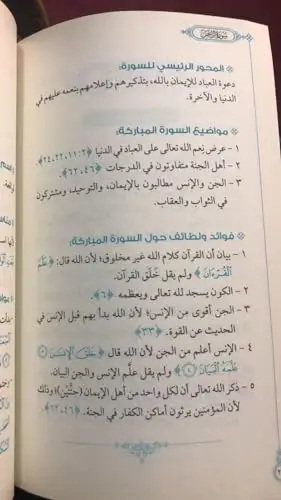 سورة الرحمن
المحور الرئيسي للسورة:
دعوة العباد للإيمان بالله، بتذكيرهم وإعلامهم بنعمه عليهم في
الدنيا والآخرة.
مواضيع السورة المباركة:
١ - عرض نِعم الله تعالى على العباد في الدنيا ﴿٢:١١، ٢٢، ٢٤﴾.
٢ - أهل الجنة متفاوتون في الدرجات ﴿٤٦، ٦٢﴾.
٣ - الجن والإنس مطالبون بالإيمان، والتوحيد، ومشتركون
في الثواب والعقاب.
فوائد ولطائف حول السورة المباركة:
١ - بيان أن القرآن كلام الله غير مخلوق؛ لأن الله قال: ﴿عَلَّمَ
الْقُرْءَانَ﴾ ولم يقل خَلَق القرآن.
٢ - الكون يسجد لله تعالى ويعظمه ﴿٦﴾.
٣ - الجن أقوى من الإنس؛ لأن الله بدأ بهم قبل الإنس في
الحديث عن القوة. ﴿٣٣﴾
٤ - الإنس أعلم من الجن لأن الله قال ﴿خَلَقَ الْإِنسَانَ ٣
عَلَّمَهُ الْبَيَانَ ٤﴾ ولم يقل علَّم الإنس والجن البيان.
٥ - ذكر الله تعالى أن لكل واحد من أهل الإيمان (جنَّتَيْن)؛ وذلك
لأن المؤمنين يرثون أماكن الكفار في الجنة. ﴿٤٦، ٦٢﴾.